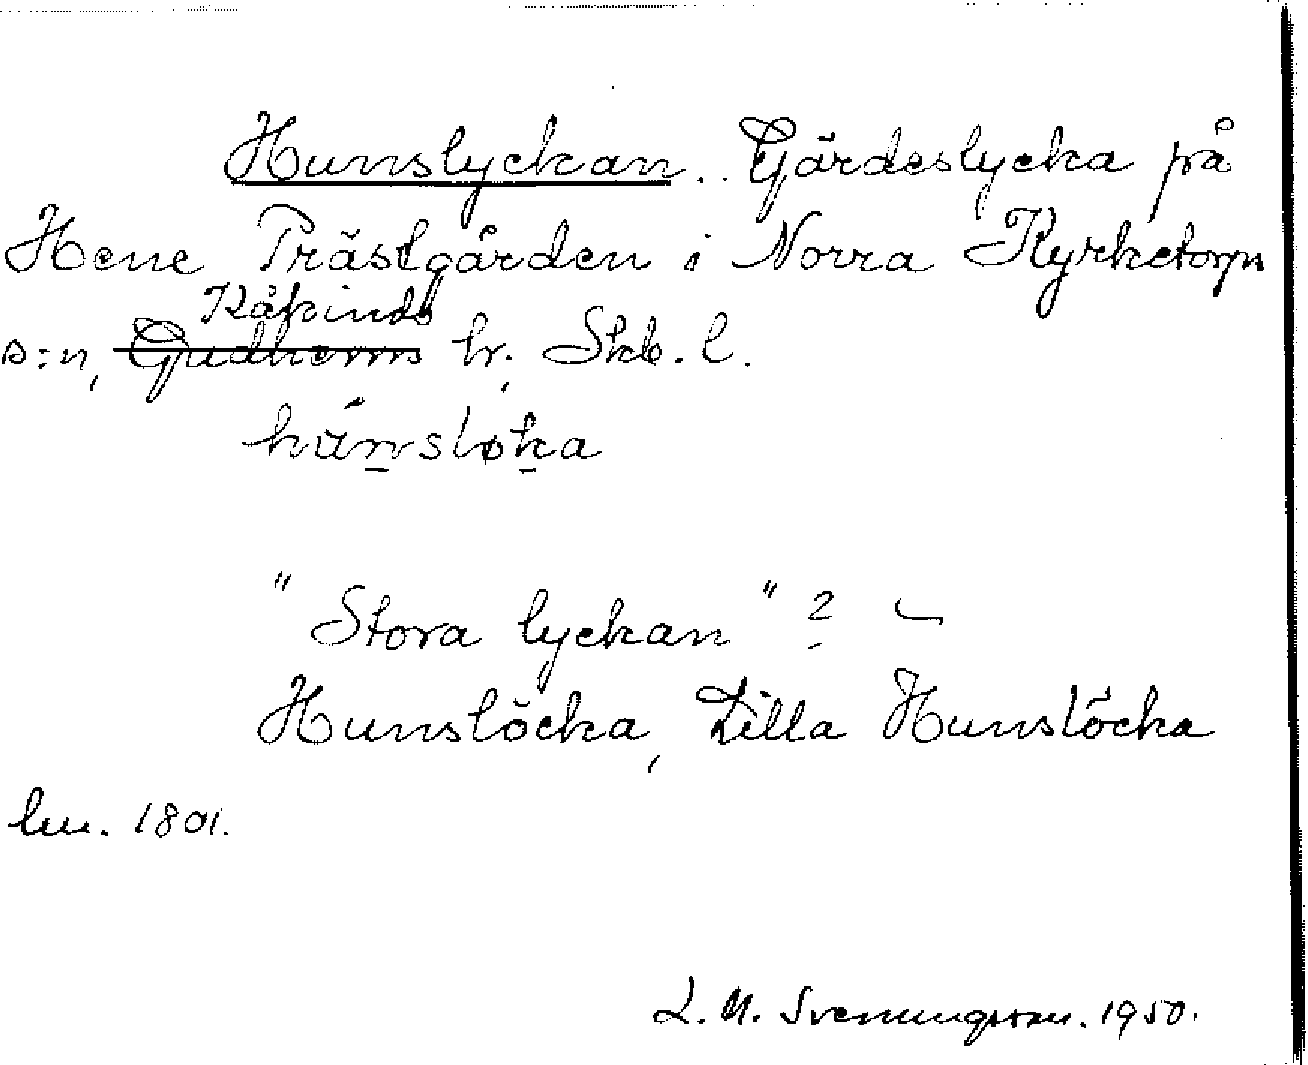 Hunslyckan. Gärdeslycka på
Hene Prästgården i Norra Kyrketorps
Kåkinds
s:n, Gudhems hr, Skb. l.
hünsløka
"Stora lyckan" ?
Hunslöcka, Lilla Hunslöcka
lm. 1801.
L. M. Svenungsson. 1950.